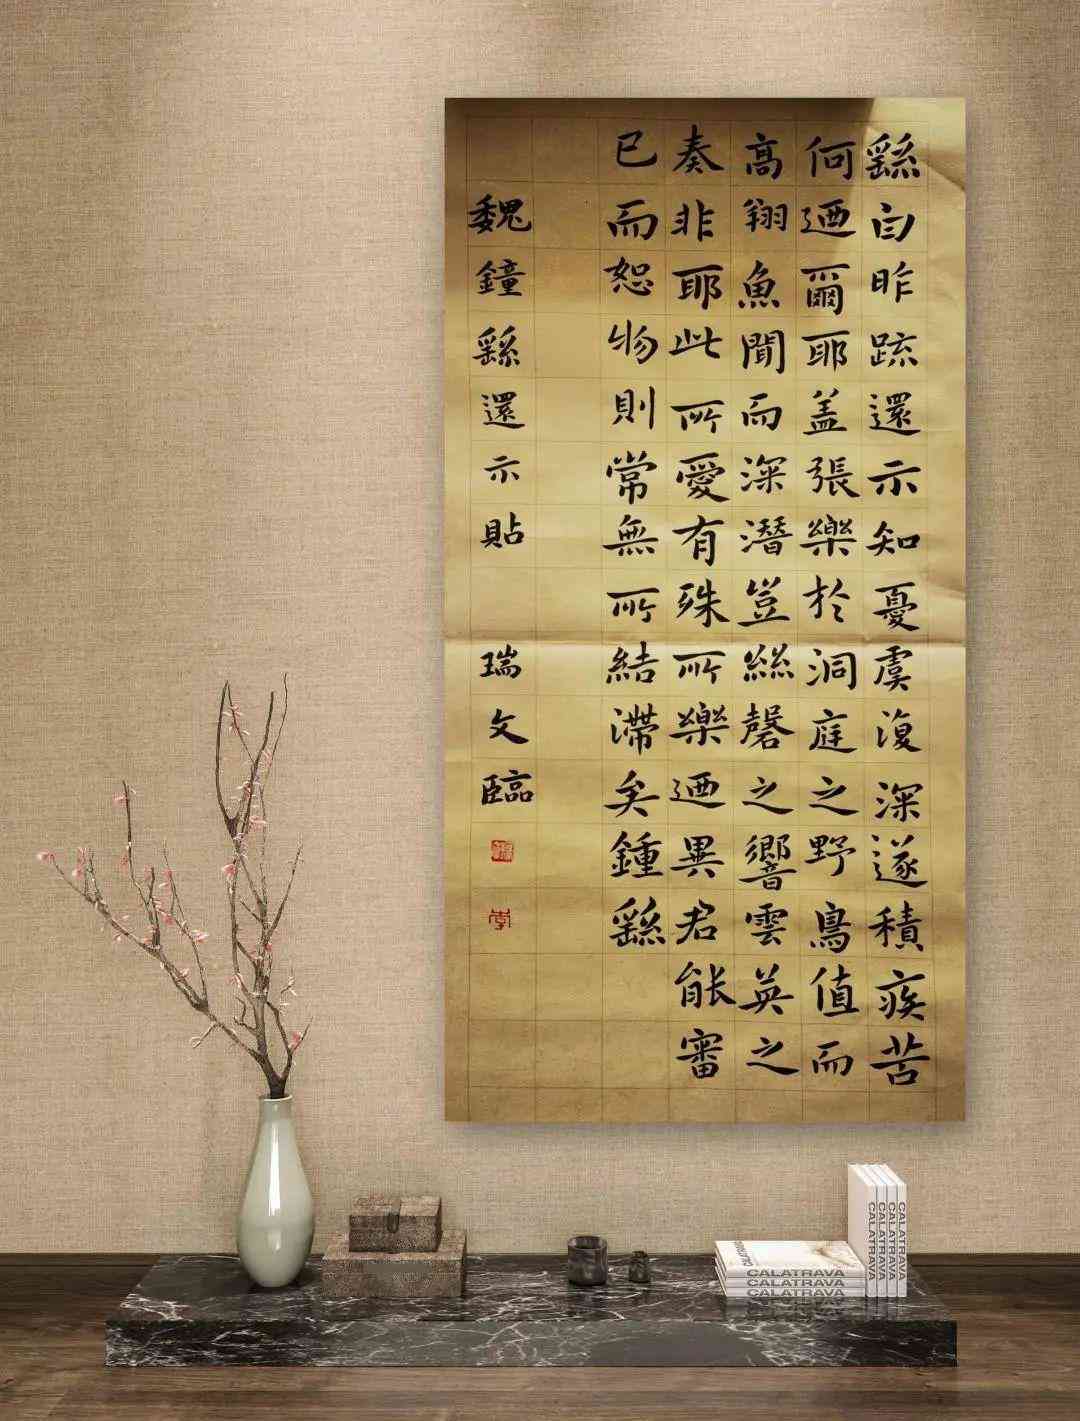 繇白昨疏還示知憂虞復深遂積疾苦
何迺爾耶盖張樂於洞庭之野鳥值而
高翔魚聞而深潛豈絲磬之響雲英之
奏非耶此所愛有殊所樂迺異君能審
已而恕物則常無所結滯矣鍾繇
魏鐘繇還示貼 瑞文臨
CALATRAVA
CALATRAVA
CALATRAVA
CALATRAVA
CALATRAVA
CALATRAVA
CALATRAVA